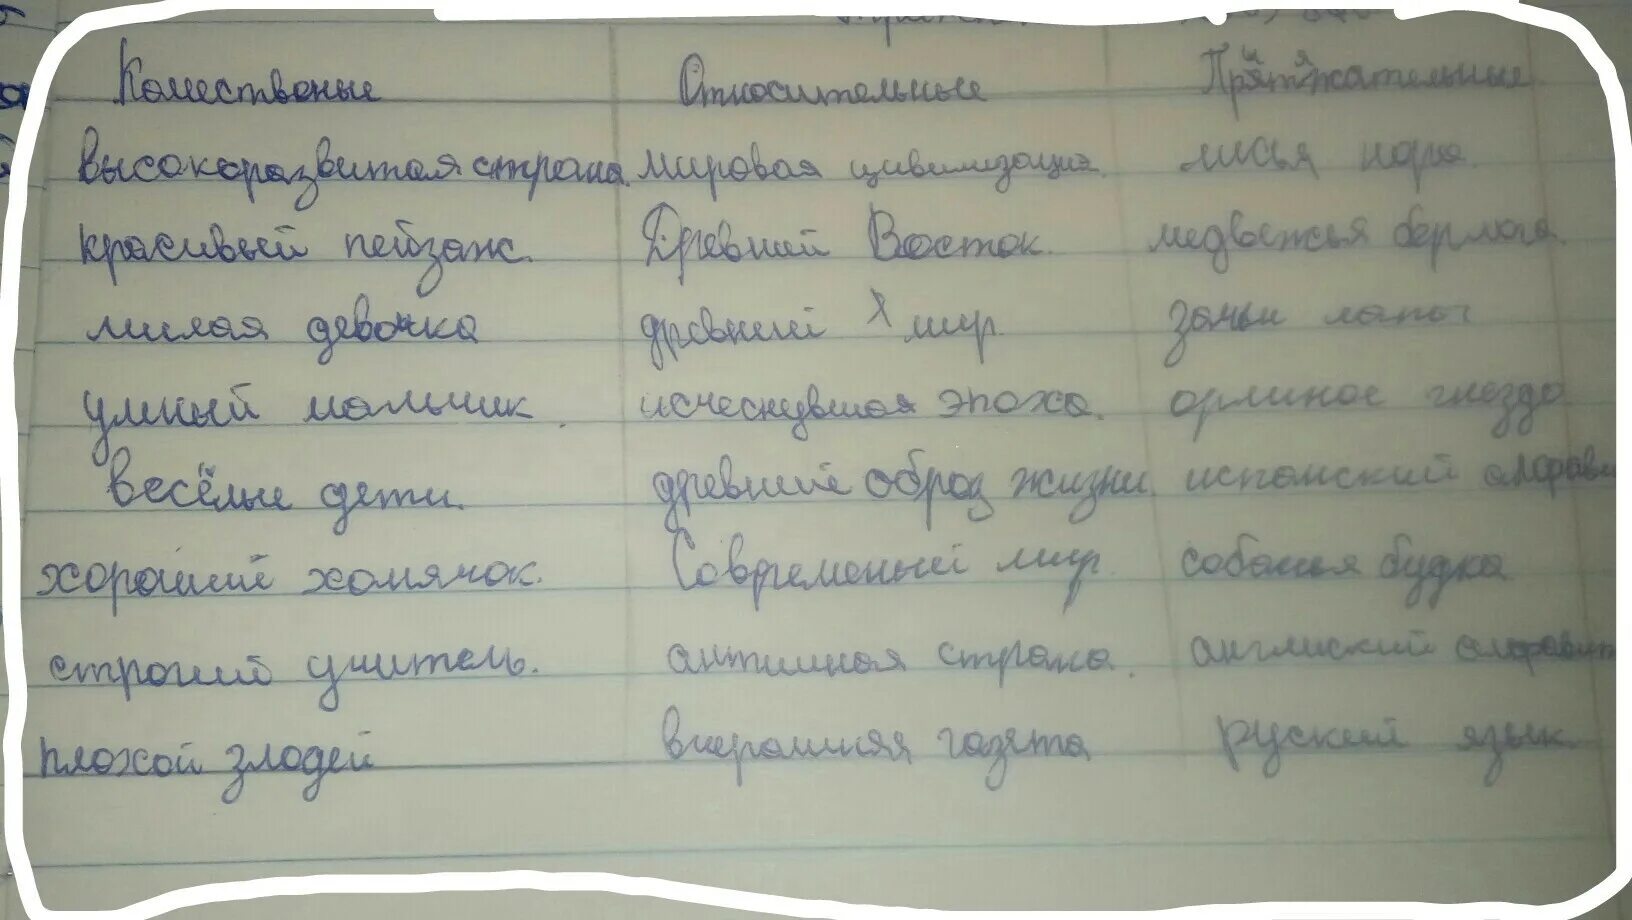 Качественые Относительные Притяжательные
высокоразвитая страна. мировая цивилизация. лисья нора.
красивый пейзаж. Древний Восток. медвежья берлога.
милая девочка древний мир. заячьи лапы
умный мальчик. исчеснувшая эпоха. орлиное гнездо.
весёлые дети. древний образ жизни. испанский алфави
хороший хомячок. Современый мир. собачья будка
строгий учитель. античная страна. английский алфавит
плохой злодей вчерашняя газета руский язык.